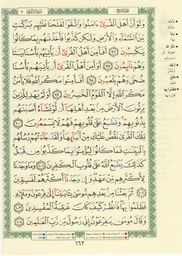 وَلَوْ أَنَّ أَهْلَ الْقُرَىٰ ءَامَنُوا وَاتَّقَوْا لَفَتَحْنَا عَلَيْهِم بَرَكَٰتٍ
مِّنَ السَّمَاءِ وَالْأَرْضِ وَلَٰكِن كَذَّبُوا فَأَخَذْنَٰهُم بِمَا كَانُوا
يَكْسِبُونَ ٩٦ أَفَأَمِنَ أَهْلُ الْقُرَىٰ أَن يَأْتِيَهُم بَأْسُنَا بَيَٰتًا
وَهُمْ نَائِمُونَ ٩٧ أَوَأَمِنَ أَهْلُ الْقُرَىٰ أَن يَأْتِيَهُم بَأْسُنَا
ضُحًى وَهُمْ يَلْعَبُونَ ٩٨ أَفَأَمِنُوا مَكْرَ اللَّهِ فَلَا يَأْمَنُ
مَكْرَ اللَّهِ إِلَّا الْقَوْمُ الْخَٰسِرُونَ ٩٩ أَوَلَمْ يَهْدِ لِلَّذِينَ
يَرِثُونَ الْأَرْضَ مِن بَعْدِ أَهْلِهَا أَن لَّوْ نَشَاءُ أَصَبْنَٰهُم
بِذُنُوبِهِمْ وَنَطْبَعُ عَلَىٰ قُلُوبِهِمْ فَهُمْ لَا يَسْمَعُونَ ١٠٠
تِلْكَ الْقُرَىٰ نَقُصُّ عَلَيْكَ مِنْ أَنبَائِهَا وَلَقَدْ جَاءَتْهُمْ رُسُلُهُم
بِالْبَيِّنَٰتِ فَمَا كَانُوا لِيُؤْمِنُوا بِمَا كَذَّبُوا مِن قَبْلُ
كَذَٰلِكَ يَطْبَعُ اللَّهُ عَلَىٰ قُلُوبِ الْكَٰفِرِينَ ١٠١ وَمَا وَجَدْنَا
لِأَكْثَرِهِم مِّنْ عَهْدٍ وَإِن وَجَدْنَا أَكْثَرَهُمْ لَفَٰسِقِينَ ١٠٢
ثُمَّ بَعَثْنَا مِن بَعْدِهِم مُّوسَىٰ بِـَٔايَٰتِنَا إِلَىٰ فِرْعَوْنَ وَمَلَإِيهِ
فَظَلَمُوا بِهَا فَانظُرْ كَيْفَ كَانَ عَٰقِبَةُ الْمُفْسِدِينَ ١٠٣
وَقَالَ مُوسَىٰ يَٰفِرْعَوْنُ إِنِّي رَسُولٌ مِّن رَّبِّ الْعَٰلَمِينَ ١٠٤
١٦٣